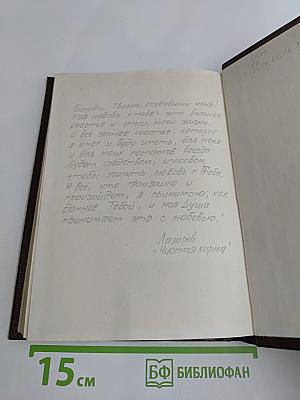 Господи, Творец, создавший меня!
Моя любовь к тебе - это высшее
счастье и смысл моей жизни.
И всё земное счастье, которое
я имел и буду иметь, для меня
и для моих потомков всегда
будет средством, способом,
чтобы усилить любовь к Тебе.
И всё, что произошло и
произойдёт, я принимаю, как
данное Тобой, и моя Душа
принимает это с любовью."
Лазарев
„Чистая карма"
15 см
БФ БИБЛИОФАН